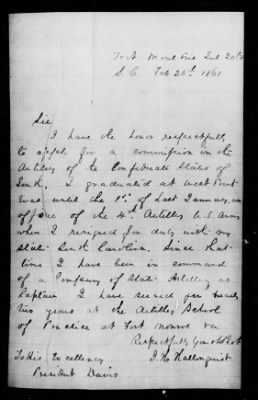 Fort Moultrie Sul. Isld
S. C. Feb 26th 1861
Sir
I have the honor respectfully
to apply for a commission in the
Artillery of the Confederate States of
South. I graduated at West Point
was until the 1st of last January, an
officer of the 4th Artillery U.S. Army
when I resigned for duty with my
State South Carolina. Since that
time I have been in command
of a Company of State Artillery as
Captain I have served for nearly
two years at the Artillery School
of Practice at Fort Monroe Va
Respectfully Your obt Svt
J. H. Hallonquist
To His Excellency
President Davis